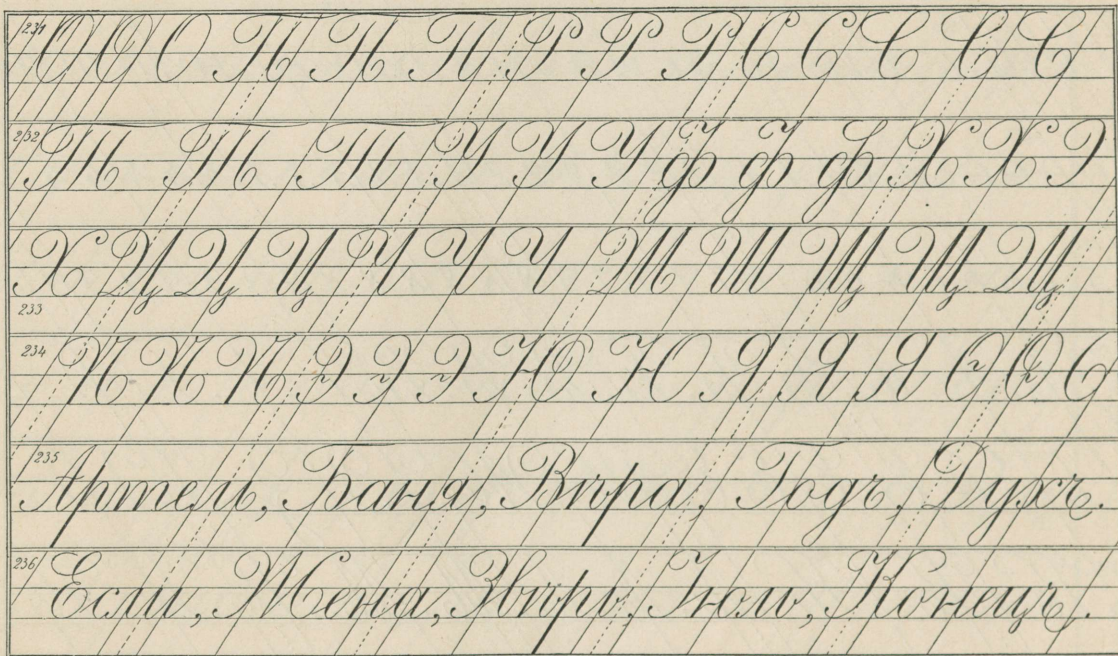 231 О О О П П П Р Р Р С С С С С
232 Т Т Т У У У Ф Ф Ф Х Х Э
233 Х Ц Ц Ц Ч Ч Ч Ш Ш Щ Щ Щ
234 Ѣ Ѣ Ѣ Э Э Э Ю Ю Я Я Я Ѳ Ѳ О
235 Артель, Баня, Вѣра, Годъ, Духъ.
236 Если, Жена, Звѣрь, Іюль, Конецъ.